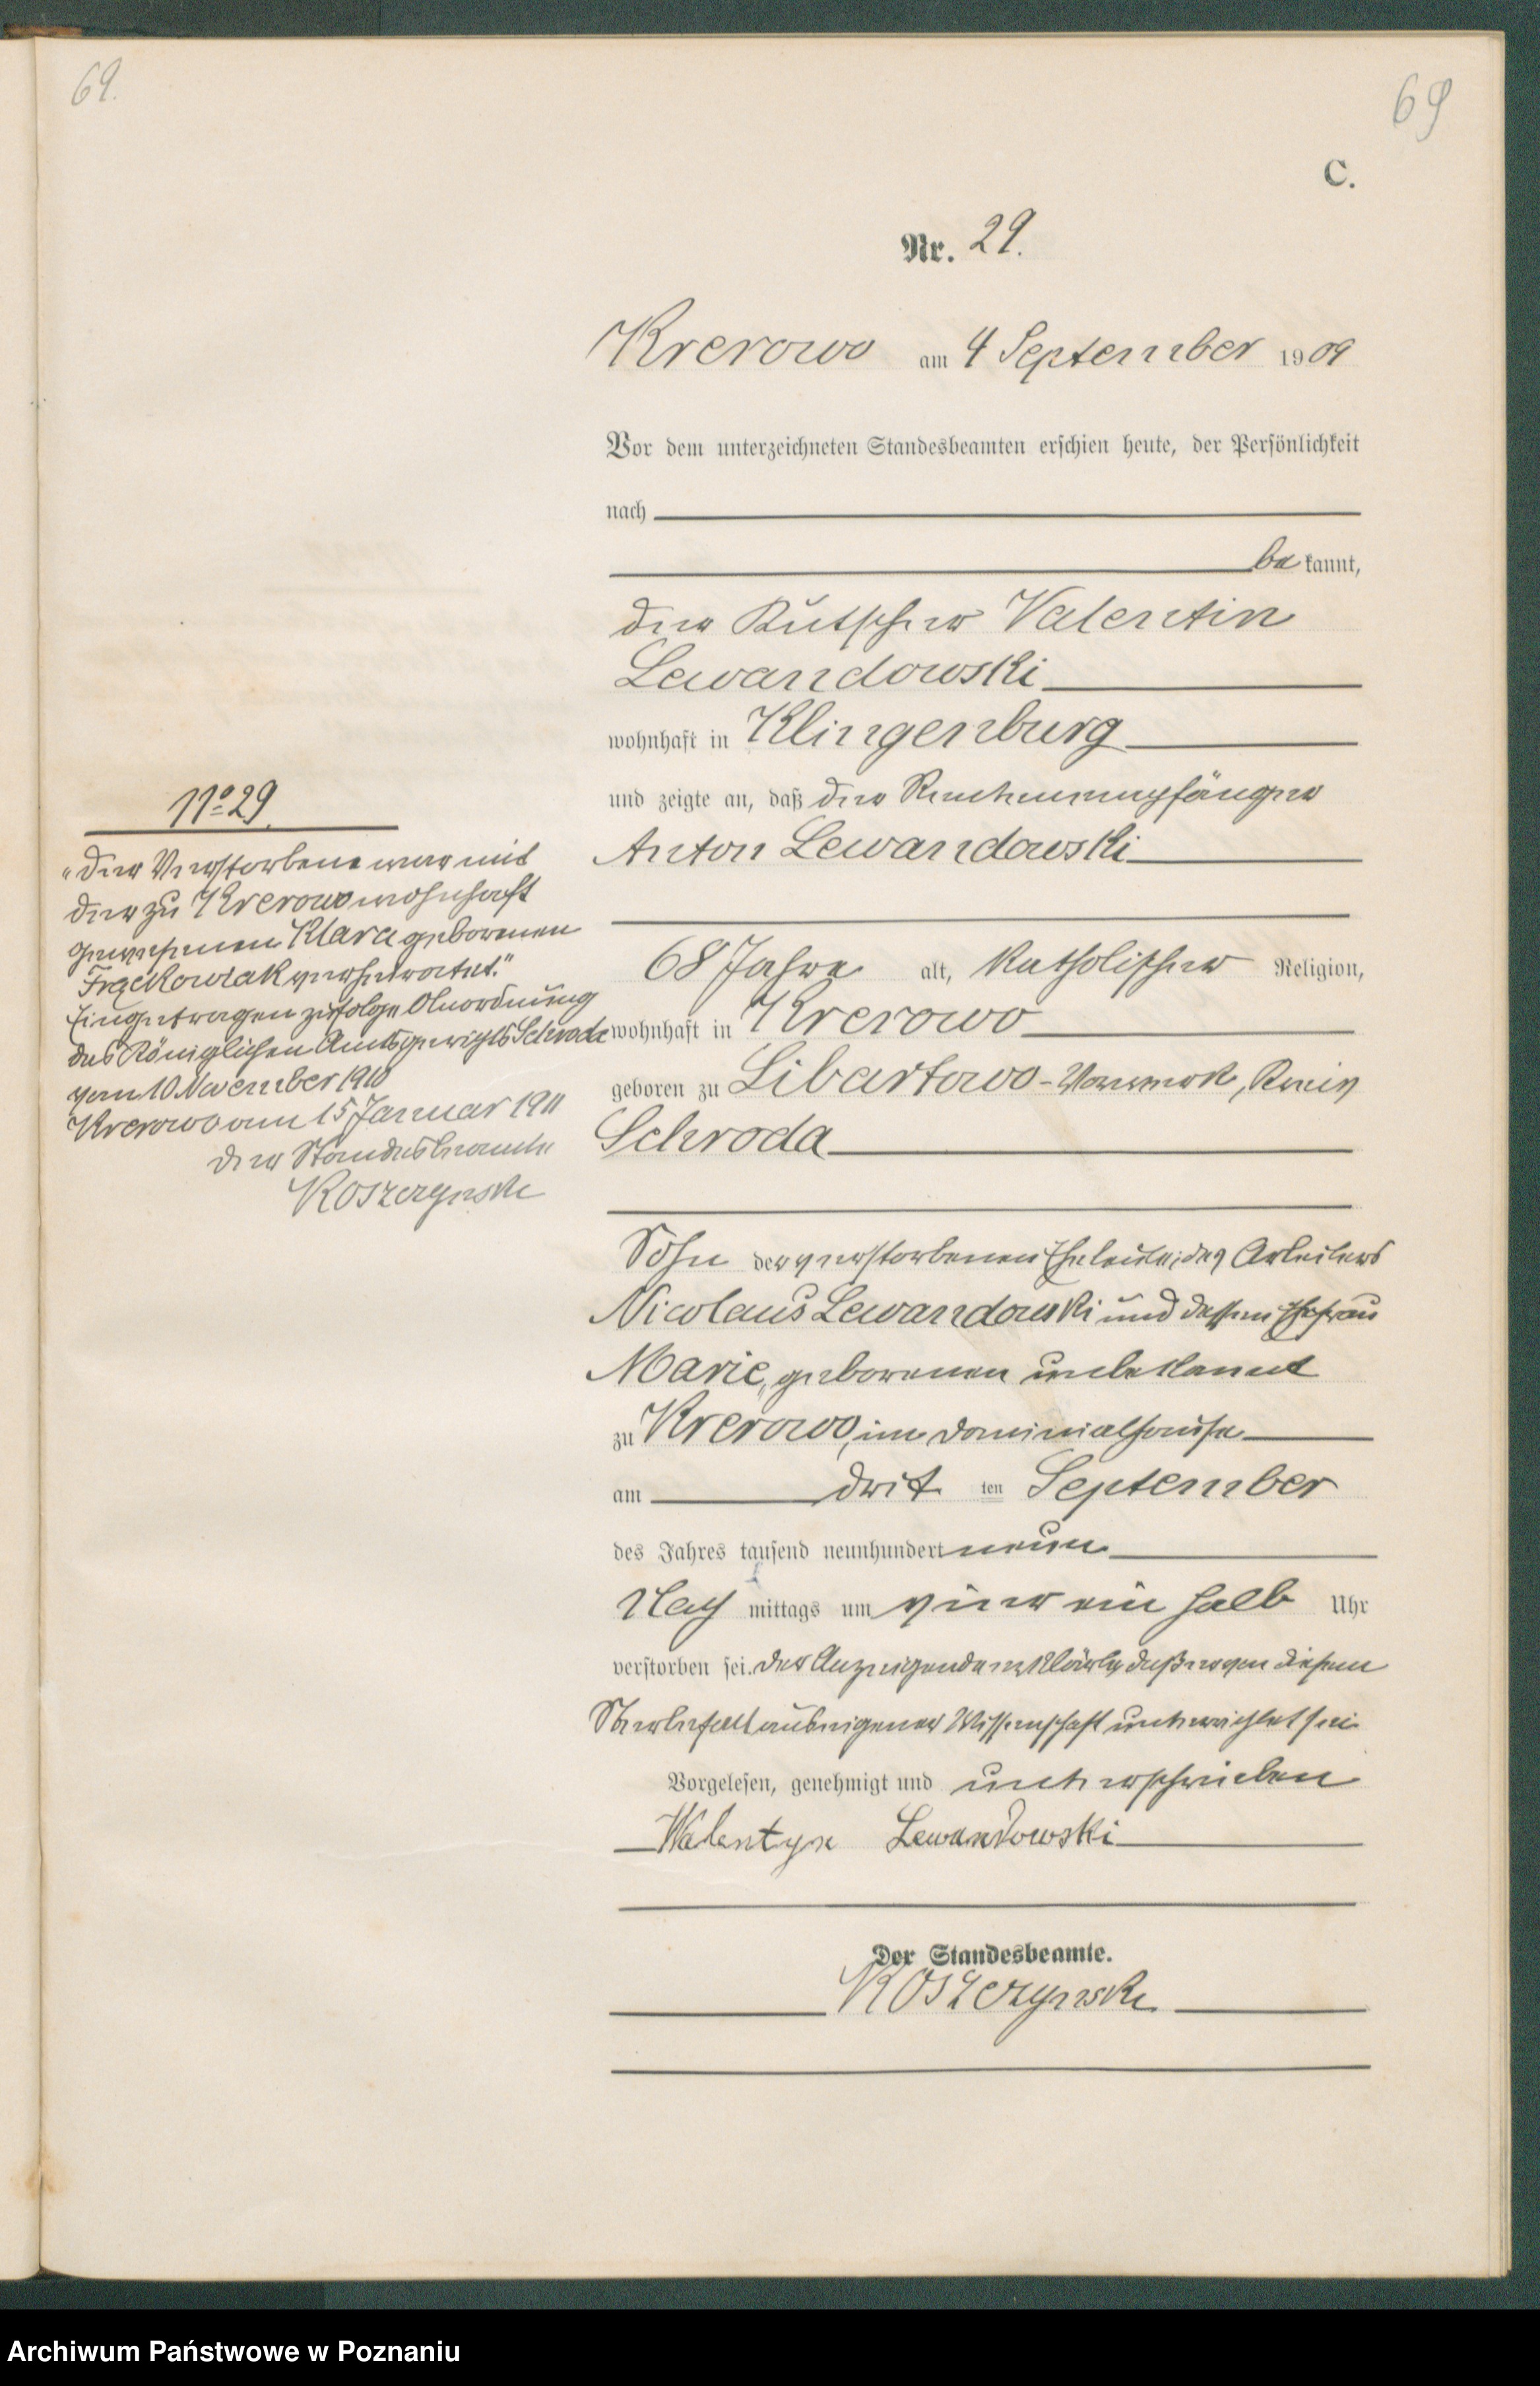 69.
69
C.
Nr. 29.
Krerowo am 4 September 1909
Vor dem unterzeichneten Standesbeamten erschien heute, der Persönlichkeit
nach
be kannt,
der Kutscher Valentin
Lewandowski
wohnhaft in Klingenburg
und zeigte an, daß der Rentenempfänger
Anton Lewandowski
68 Jahre alt, katholischer Religion,
wohnhaft in Krerowo
geboren zu Libartowo-Vorwerk, Kreis
Schroda
Sohn der verstorbenen Eheleute, des Arbeiters
Nicolaus Lewandowski und dessen Ehefrau
Marie, geborenen unbekannt
zu Krerowo, im Dominialhause
am dritten September
des Jahres tausend neunhundert neun
Nach mittags um vier ein halb Uhr
verstorben sei. Der Anzeigende erklärte, daß er von diesem
Sterbefall aus eigener Wissenschaft unterrichtet sei
Vorgelesen, genehmigt und unterschrieben
Walentyn Lewandowski
Der Standesbeamte.
Koszczynski
No 29.
"Der Verstorbene war mit
der zu Krerowo wohnhaft
gewesenen Klara geborenen
Frąckowiak verheiratet."
Eingetragen zufolge Anordnung
des Königlichen Amtsgerichts Schroda
vom 10 November 1910
Krerowo am 15 Januar 1911
Der Standesbeamte
Koszczynski
Archiwum Państwowe w Poznaniu